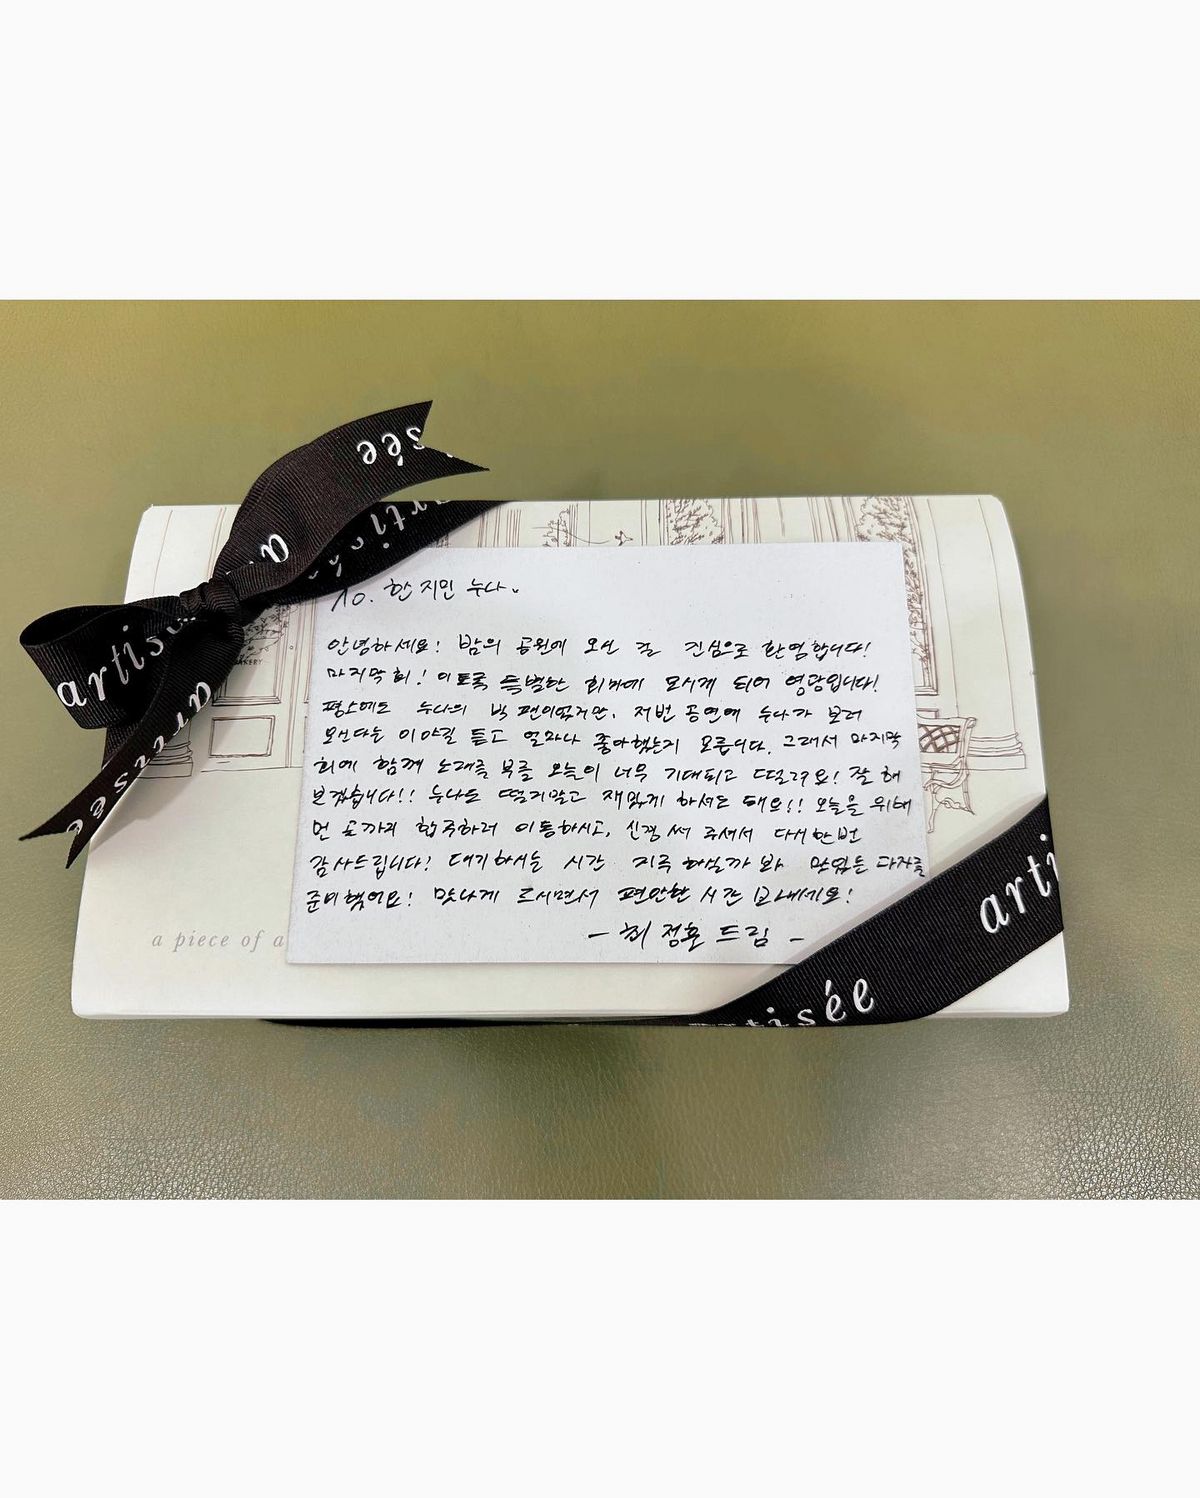 sée
arti
artisée
artisée
BAKERY
To. 한지민 누나.
안녕하세요! 밤의 공원에 오신 걸 진심으로 환영합니다!
마지막회! 이토록 특별한 회차에 모시게 되어 영광입니다!
평소에도 누나의 빅 팬이었지만, 저번 공연에 누나가 보러
오신다는 이야길 듣고 얼마나 좋아했는지 모릅니다. 그래서 마지막
회에 함께 노래를 부를 오늘이 너무 기대되고 떨려요! 잘 해
보겠습니다!! 누나도 떨지말고 재밌게 하셔도 돼요!! 오늘을 위해
먼 곳까지 합주하러 이동하시고, 신경 써 주셔서 다시 한번
감사드립니다! 대기하시는 시간 지루하실까 봐 맛있는 다과를
준비했어요! 맛나게 드시면서 편안한 시간 보내세요!
- 최정훈 드림 -
a piece of a
arti
artisée